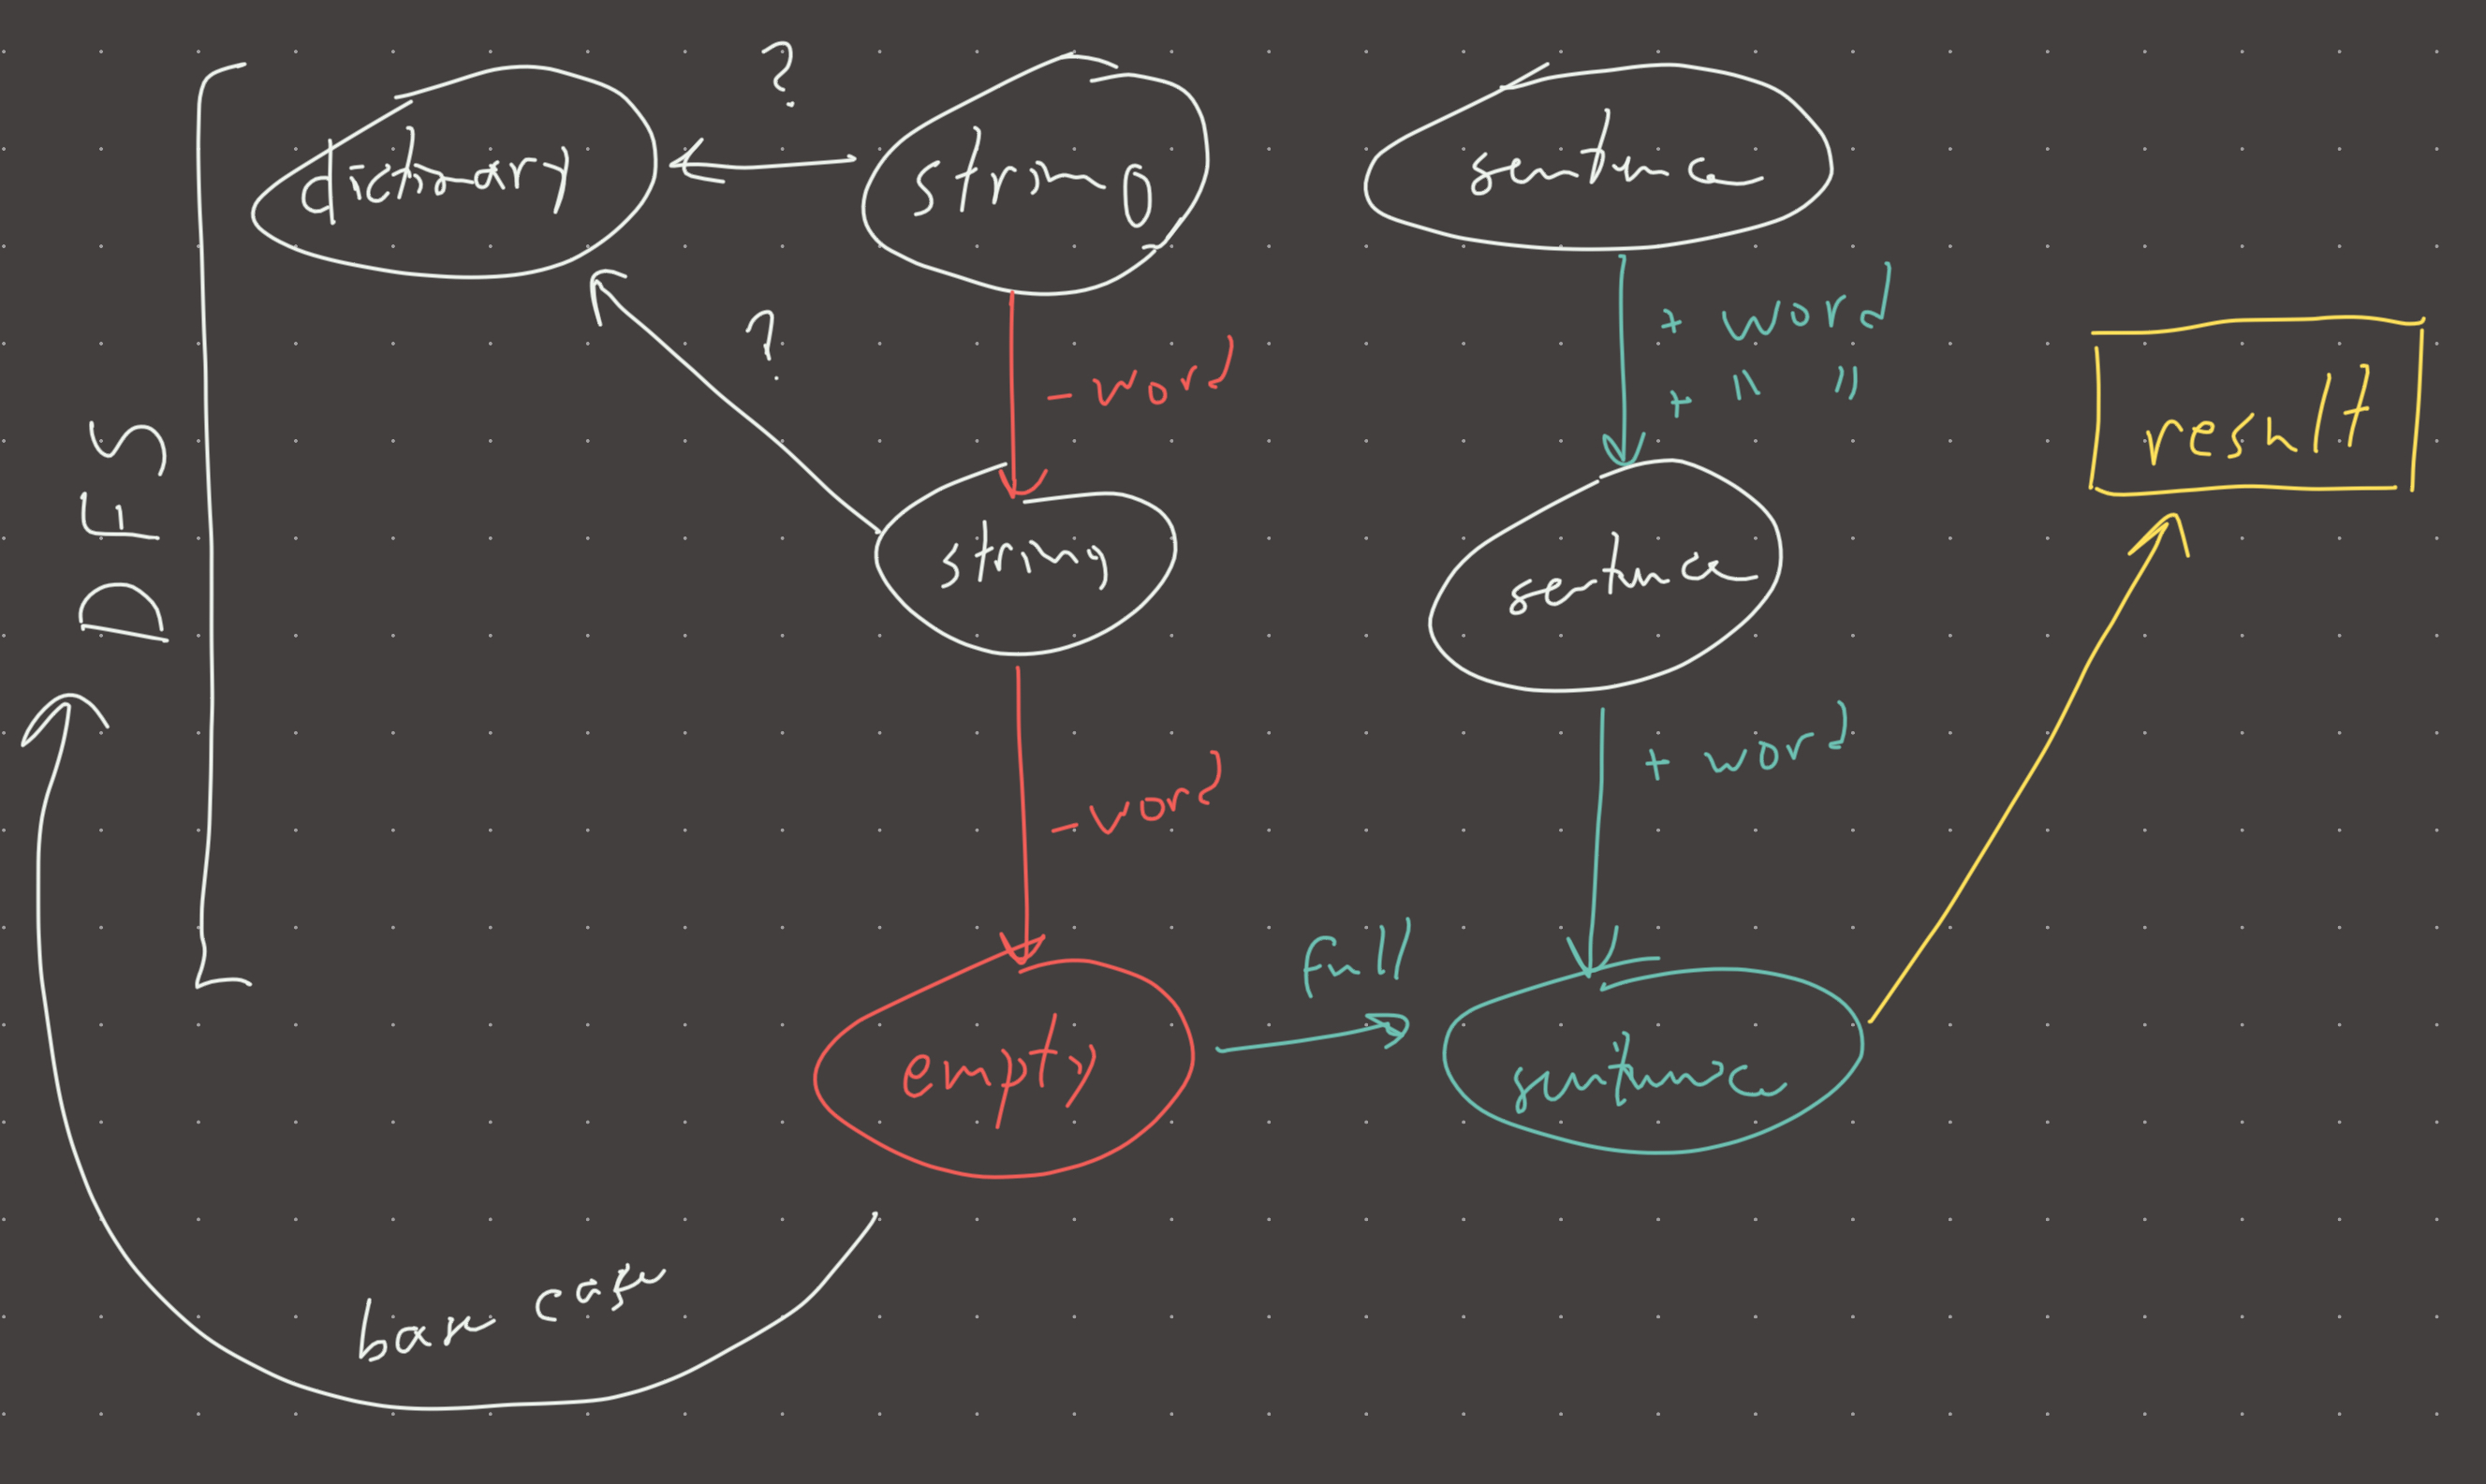 ?
dictionary
string
sentence
+ word
+ " "
- word
?
result
DFS
string
sentence
+ word
- word
full
empty
sentence
base case